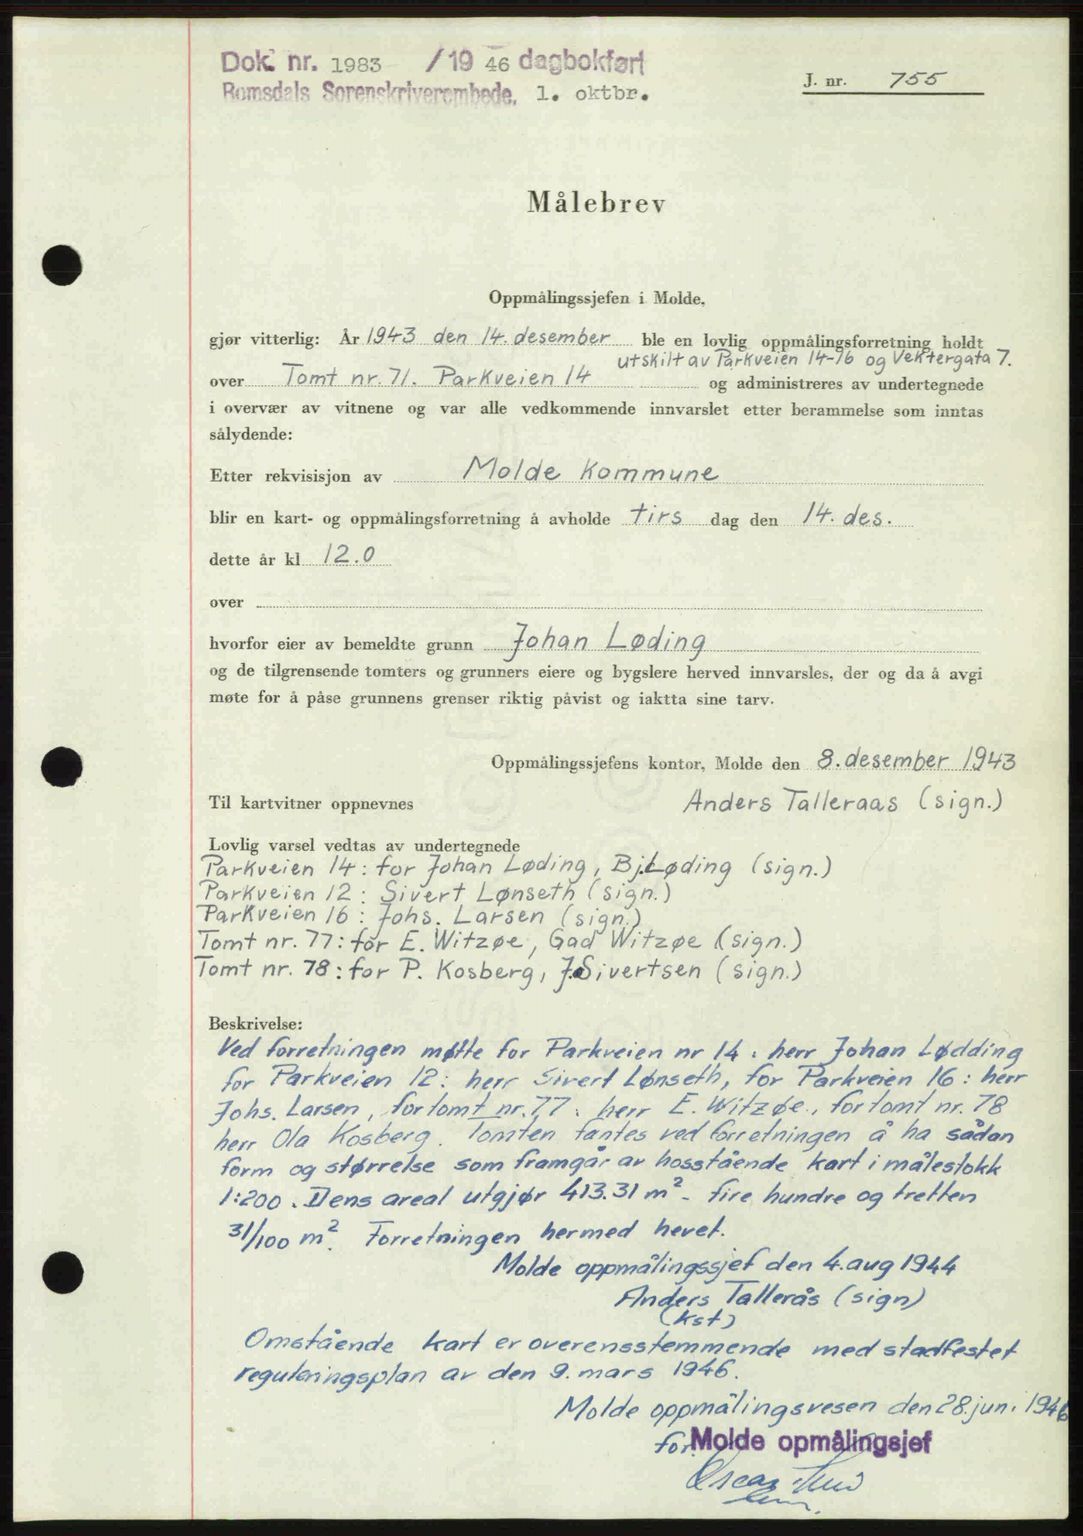 Dok. nr. 1983 / 19 46 dagbokført
Romsdals Sorenskriverembede. 1. oktbr.
J. nr. 755
Målebrev
Oppmålingssjefen i Molde,
gjør vitterlig: År 1943 den 14. desember ble en lovlig oppmålingsforretning holdt
utskilt av Parkveien 14-16 og Vektergata 7.
over Tomt nr. 71. Parkveien 14 og administreres av undertegnede
i overvær av vitnene og var alle vedkommende innvarslet etter berammelse som inntas
sålydende:
Etter rekvisisjon av Molde Kommune
blir en kart- og oppmålingsforretning å avholde tirs dag den 14. des.
dette år kl 12.0
over
hvorfor eier av bemeldte grunn Johan Løding
og de tilgrensende tomters og grunners eiere og bygslere herved innvarsles, der og da å avgi
møte for å påse grunnens grenser riktig påvist og iaktta sine tarv.
Oppmålingssjefens kontor, Molde den 8. desember 1943
Til kartvitner oppnevnes Anders Talleraas (sign.)
Lovlig varsel vedtas av undertegnede
Parkveien 14: for Johan Løding, Bj. Løding (sign.)
Parkveien 12: Sivert Lønseth (sign.)
Parkveien 16: Johs. Larsen (sign.)
Tomt nr. 77: for E. Witzøe, Gad Witzøe (sign.)
Tomt nr. 78: for P. Kosberg, J. Sivertsen (sign.)
Beskrivelse:
Ved forretningen møtte for Parkveien nr 14: herr Johan Lødding
for Parkveien 12: herr Sivert Lønseth, for Parkveien 16: herr
Johs. Larsen, for tomt nr. 77: herr E. Witzøe, for tomt nr. 78
herr Ola Kosberg. Tomten fantes ved forretningen å ha sådan
form og størrelse som framgår av hosstående kart i målestokk
1:200. Dens areal utgjør 413.31 m² - fire hundre og tretten
31/100 m². Forretningen hermed hevet.
Molde oppmålingssjef den 4. aug 1944
Anders Tallerås (sign)
(kst)
Omstående kart er overensstemmende med stadfestet
reguleringsplan av den 9. mars 1946.
Molde oppmålingsvesen den 28. juni 1946
for Molde opmålingsjef
Oscar